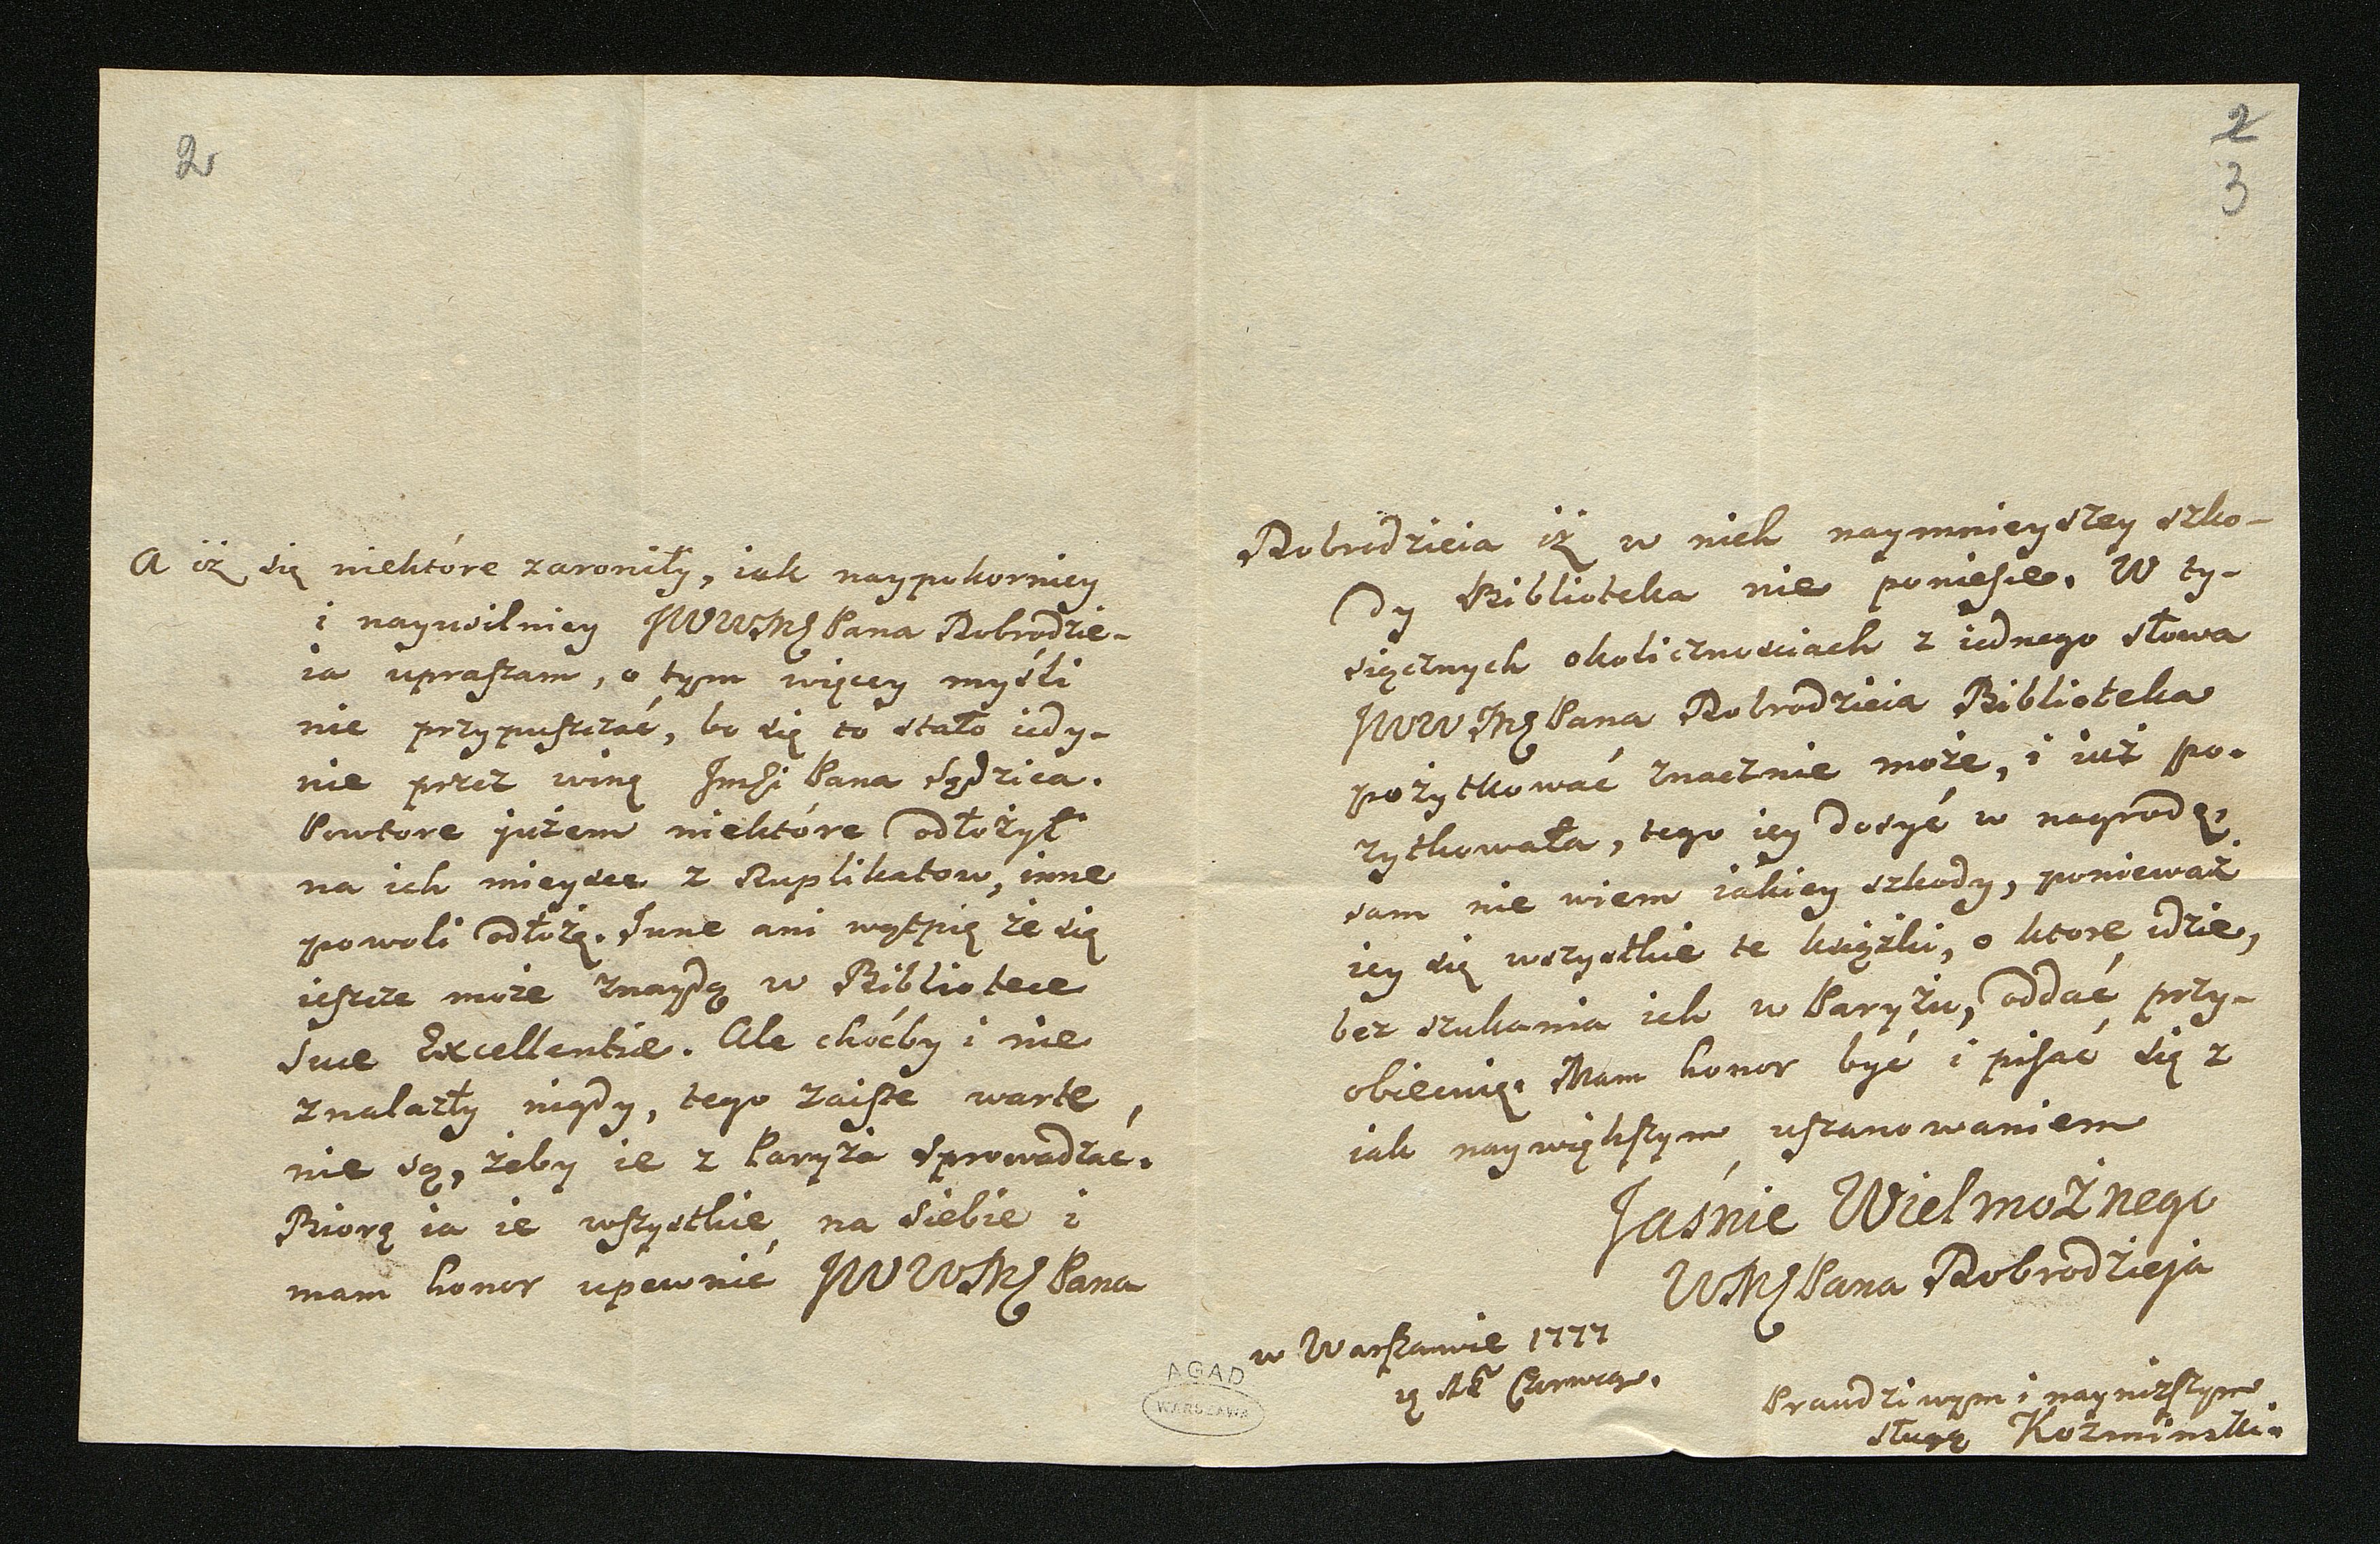 2
A iż się niektóre zaroniły, iak naypokorniey
i nayusilniey JWWMć Pana Dobrodzie-
ia upraszam, o tym więcey myśli
nie przypuszczać, bo się to stało iedy-
nie przez winę Jmći Pana Sędzica.
Powtore jużem niektóre odłożył
na ich mieysce z Duplikatow, inne
powoli odłożę. Inne ani wątpię że się
ieszcze może znaydą w Bibliotece
Sue Excellentie. Ale choćby i nie
znalazły nigdy, tego zaiste warte
nie są, żeby ie z Paryża sprowadzać.
Biorę ia ie wszystkie na siebie i
mam honor upewnić JWWMć Pana
2
3
Dobrodzieia iż w nich naymnieyszey szko-
dy Biblioteka nie poniesie. W ty-
siącznych okolicznosciach z iednego słowa
JWWMć Pana Dobrodzieia Biblioteka
pożytkować znacznie może, i iuż po-
żytkowała, tego iey dosyć w nagrodę,
sam nie wiem iakiey szkody, ponieważ
iey się wszystkie te książki, o ktore idzie,
bez szukania ich w Paryżu, oddać przy-
obiecuię. Mam honor być i pisać się z
iak naywiększym uszanowaniem
Jaśnie Wielmożnego
WMć Pana Dobrodzieja
w Warszawie 1777
Czerwca.
Prawdziwym i nayniższym
sługą Koźminski.
AGAD
WARSZAWA